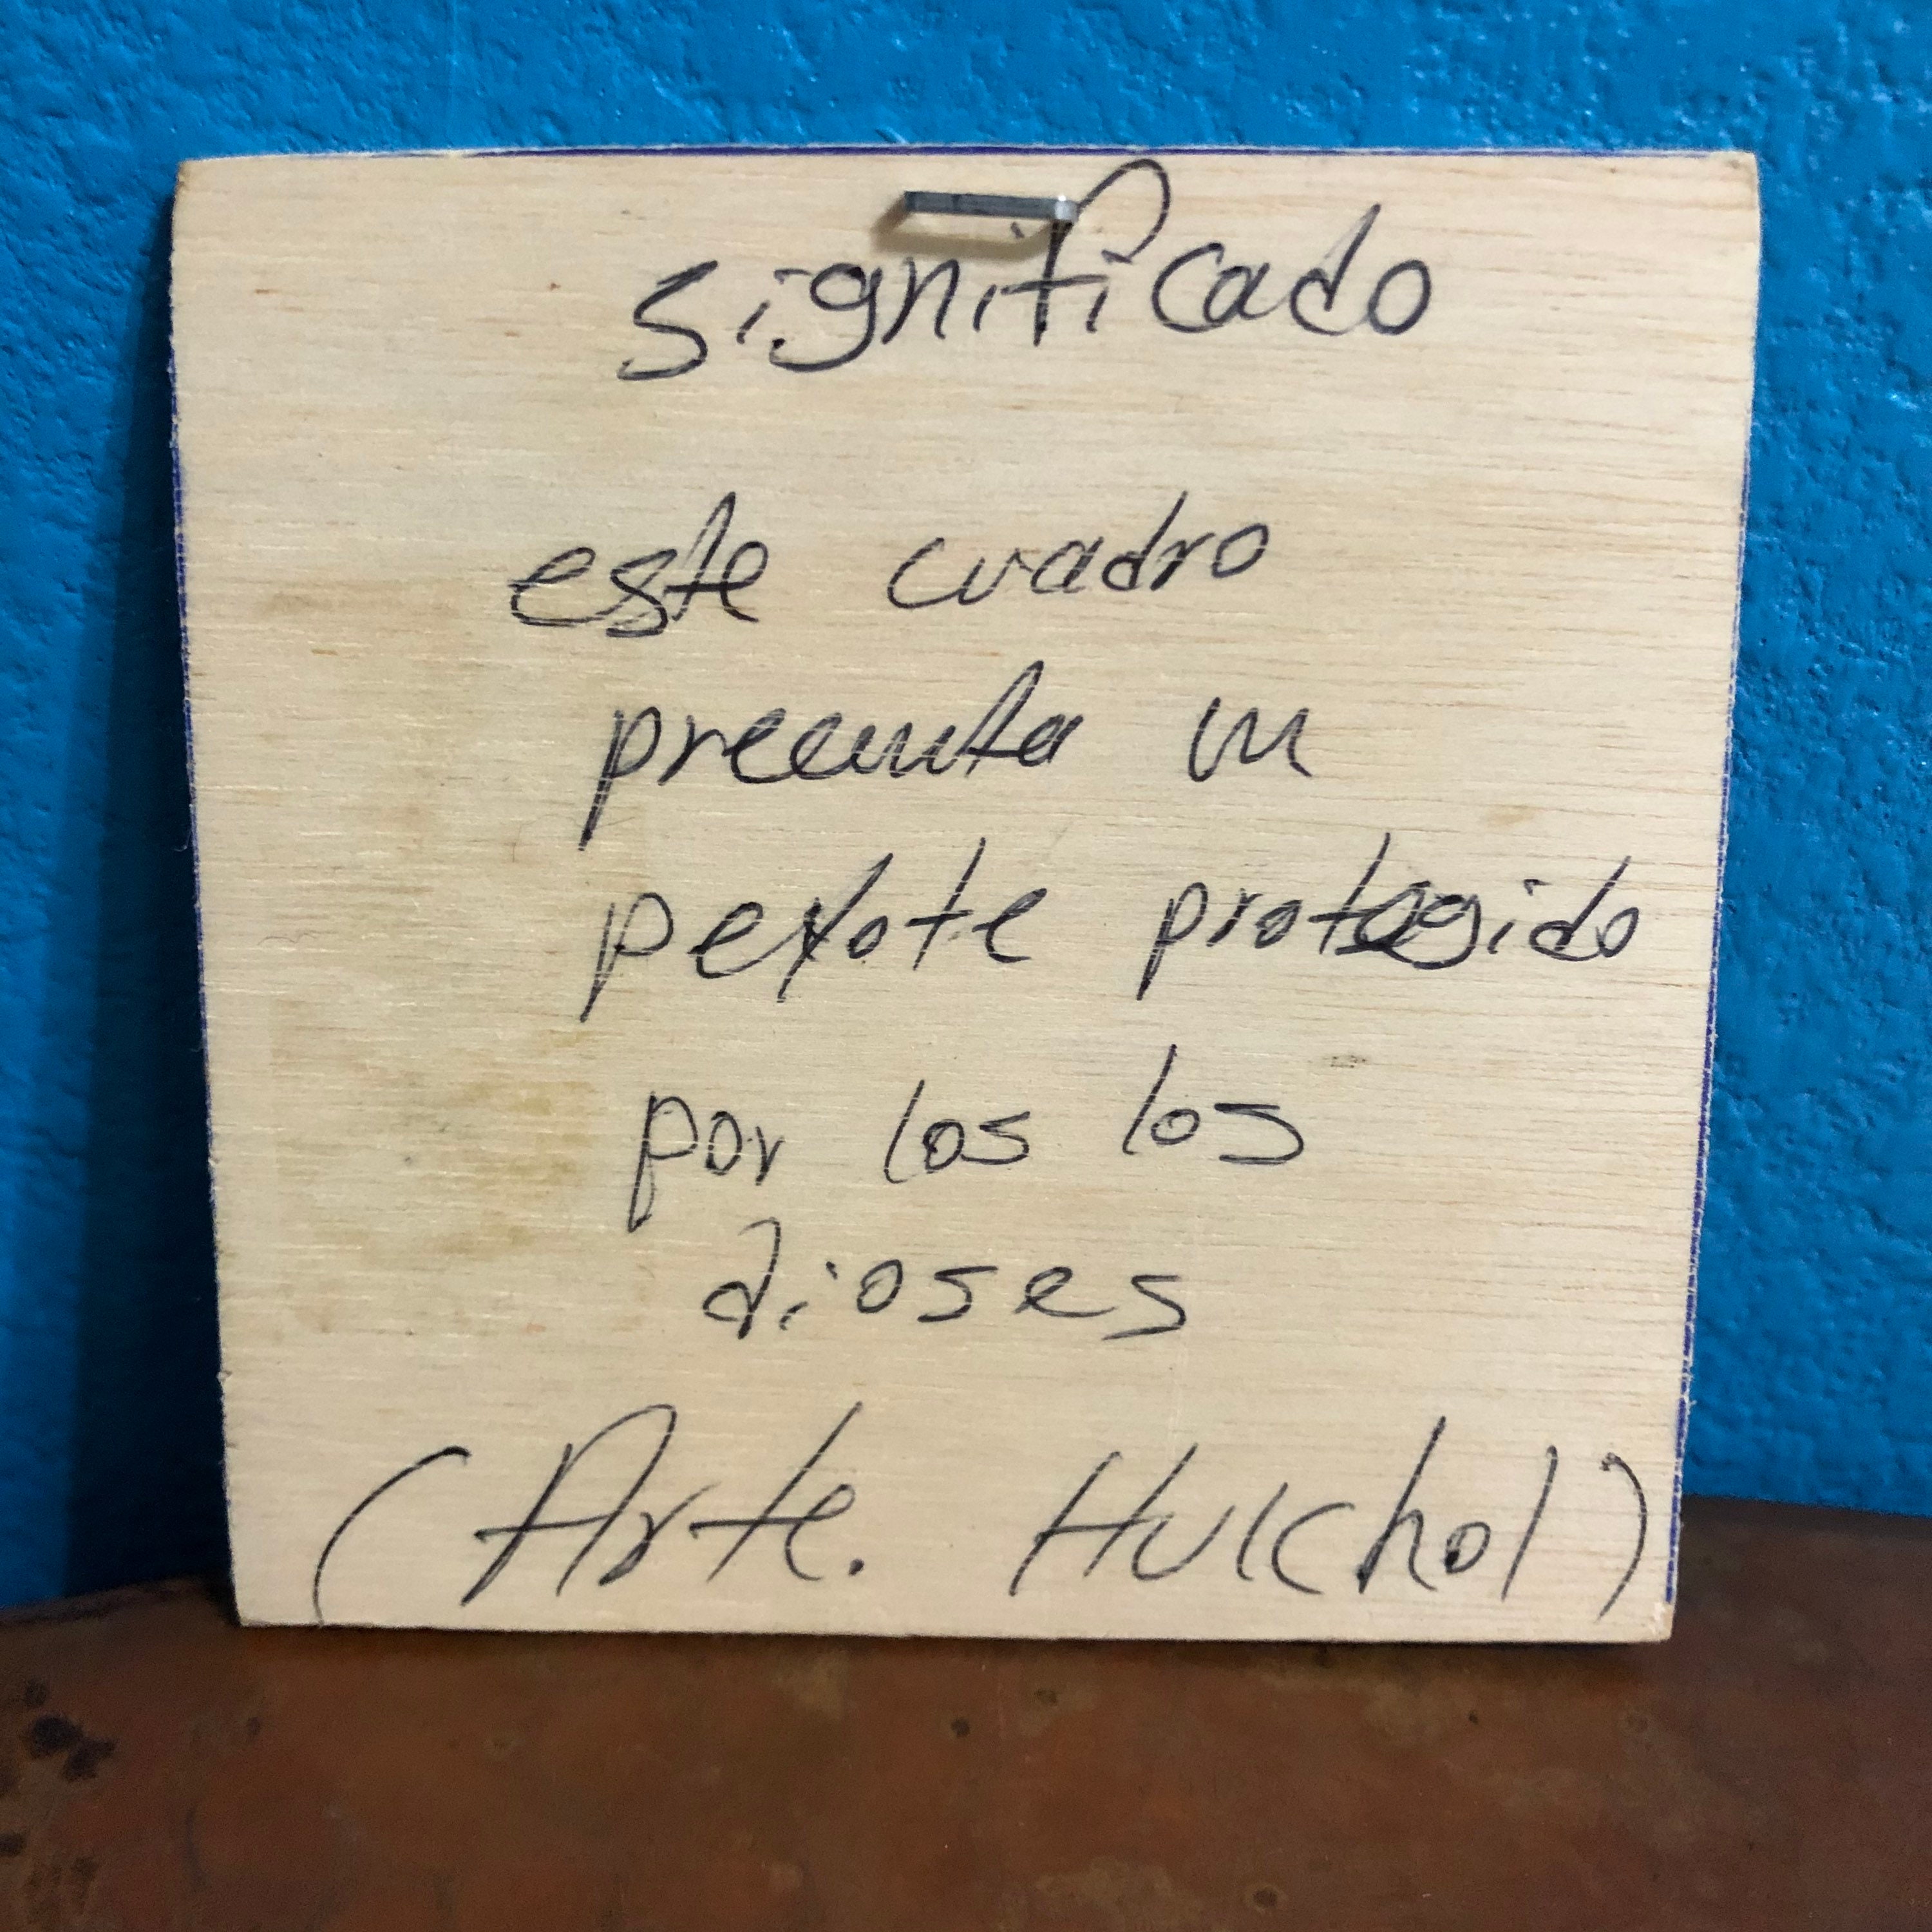 significado
este cuadro
preenta un
peyote protegido
por los los
dioses
(Arte. Huichol)